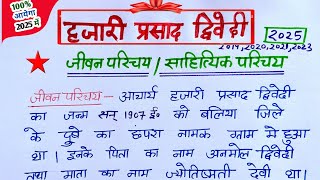 100%
आयेगा
2025 में
हजारी प्रसाद द्विवेदी
2025
2019,2020,2021,2023
जीवन परिचय / साहित्यिक परिचय
जीवन परिचय - आचार्य हजारी प्रसाद द्विवेदी
का जन्म सन् 1907 ई० को बलिया जिले
के दुबे का छपरा नामक ग्राम में हुआ
था। इनके पिता का नाम अनमोल द्विवेदी
तथा माता का नाम ज्योतिष्मती देवी था।